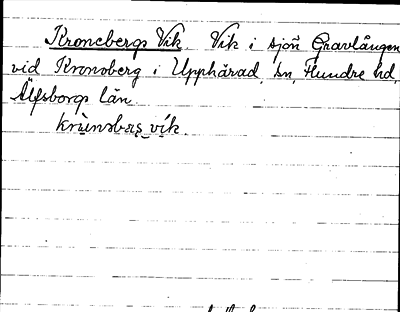 Kronebergs Vik. Vik i sjön Gravlången
vid Kronoberg i Upphärad sn, Flundre hd,
Älfsborgs län.